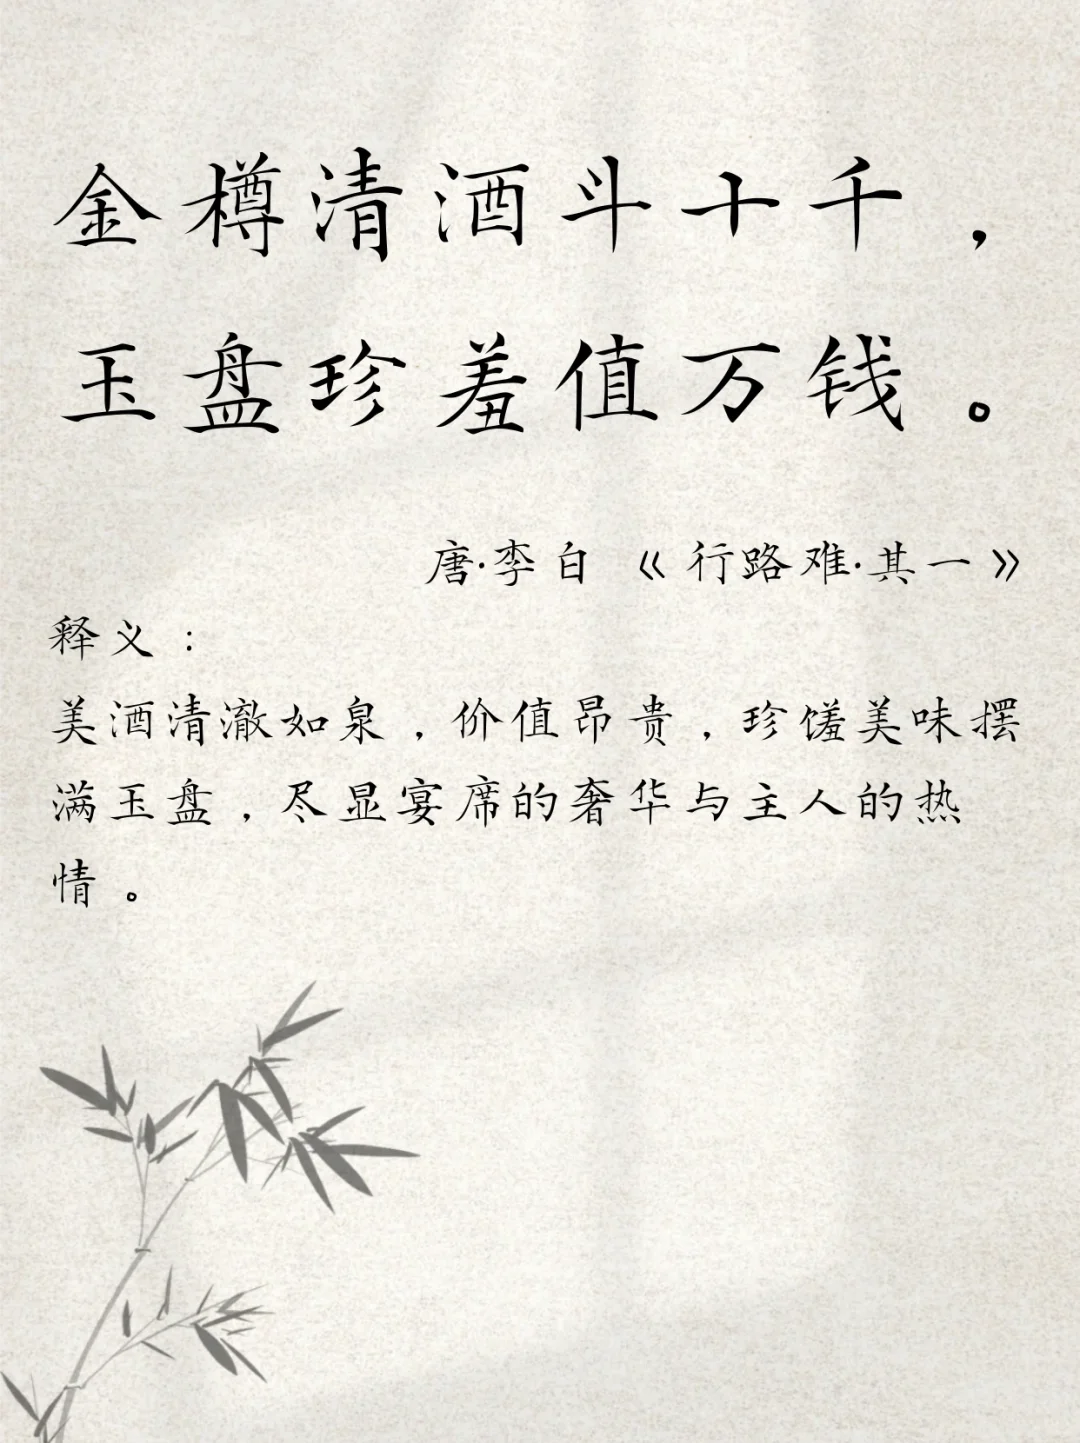 金樽清酒斗十千，
玉盘珍羞值万钱。
唐·李白《行路难·其一》
释义：
美酒清澈如泉，价值昂贵，珍馐美味摆
满玉盘，尽显宴席的奢华与主人的热
情。